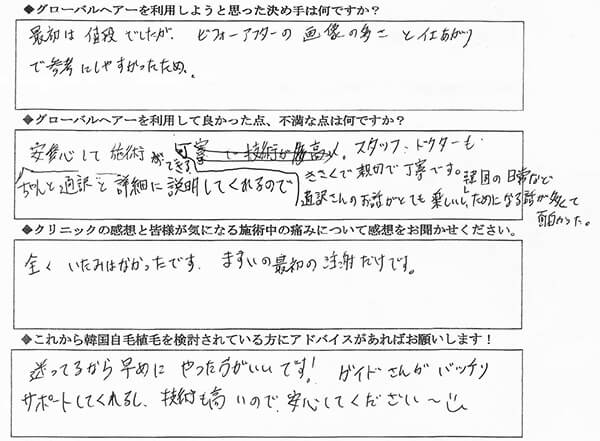 ◆グローバルヘアーを利用しようと思った決め手は何ですか？
最初は値段でしたが、ビフォーアフターの画像の多さと仕あがり
で参考にしやすかったため、
◆グローバルヘアーを利用して良かった点、不満な点は何ですか？
安心して施術ができる。スタッフ、ドクターも
きさくで親切で丁寧です。韓国の日常など
ちゃんと通訳と詳細に説明してくれるので
通訳さんのお話がとても楽しいし、ためになる話が多くて
面白かった。
◆クリニックの感想と皆様が気になる施術中の痛みについて感想をお聞かせください。
全くいたみはなかったです、ますいの最初の注射だけです。
◆これから韓国自毛植毛を検討されている方にアドバイスがあればお願いします！
迷ってるから早めにやった方がいいです！ ガイドさんがバッチリ
サポートしてくれるし、技術も高いので、安心してください〜